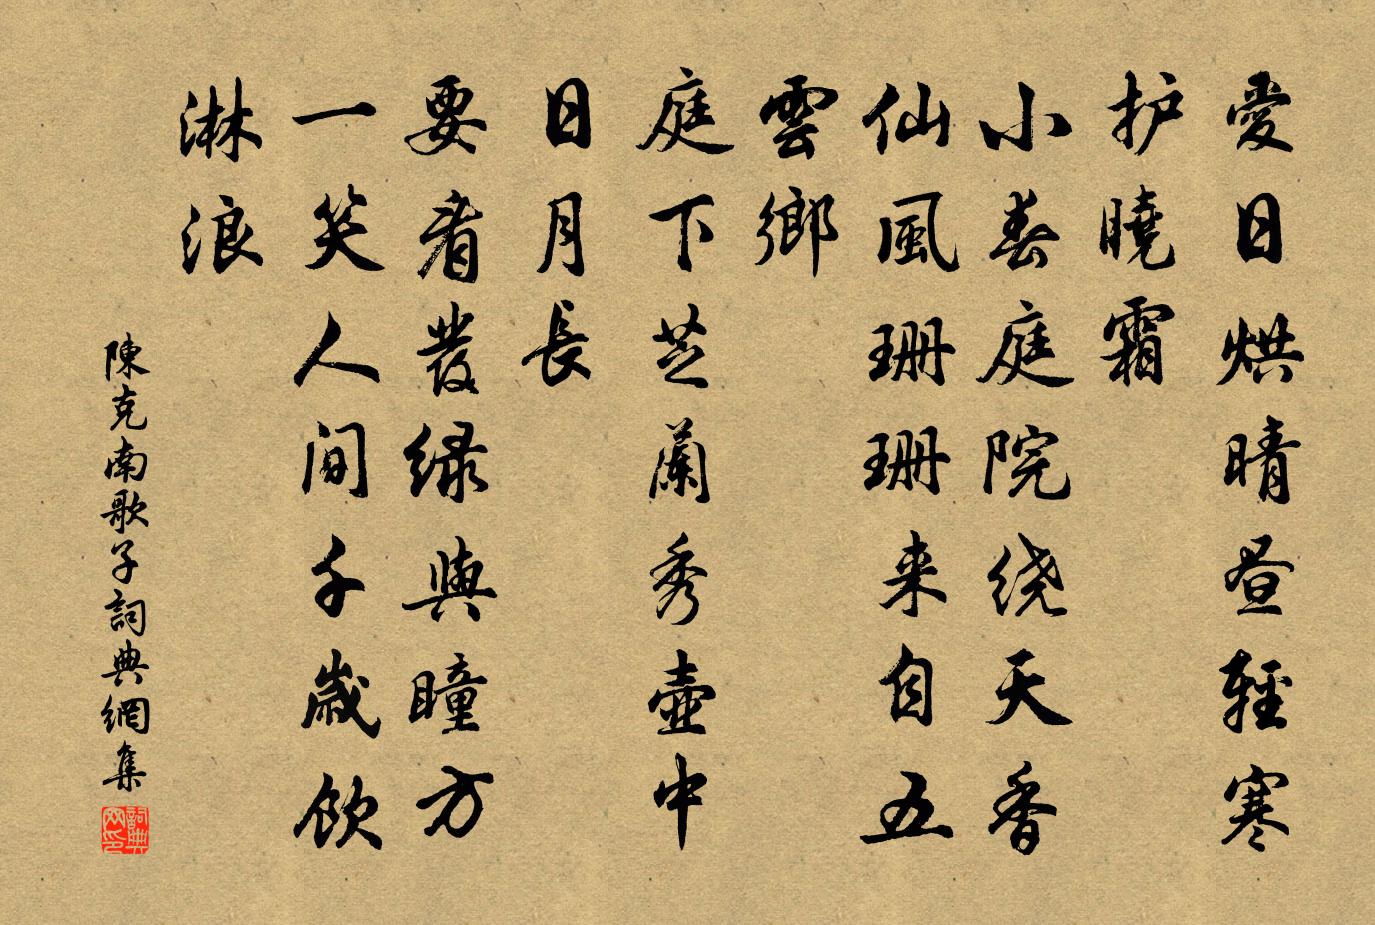 愛日烘晴昼輕寒
护曉霜
小春庭院绕天香
仙風珊珊来自五
雲鄉
庭下芝蘭秀壺中
日月長
要看發绿與瞳方
一笑人间千歲飲
淋浪
陳克南歌子詞典網集
詞典
网印